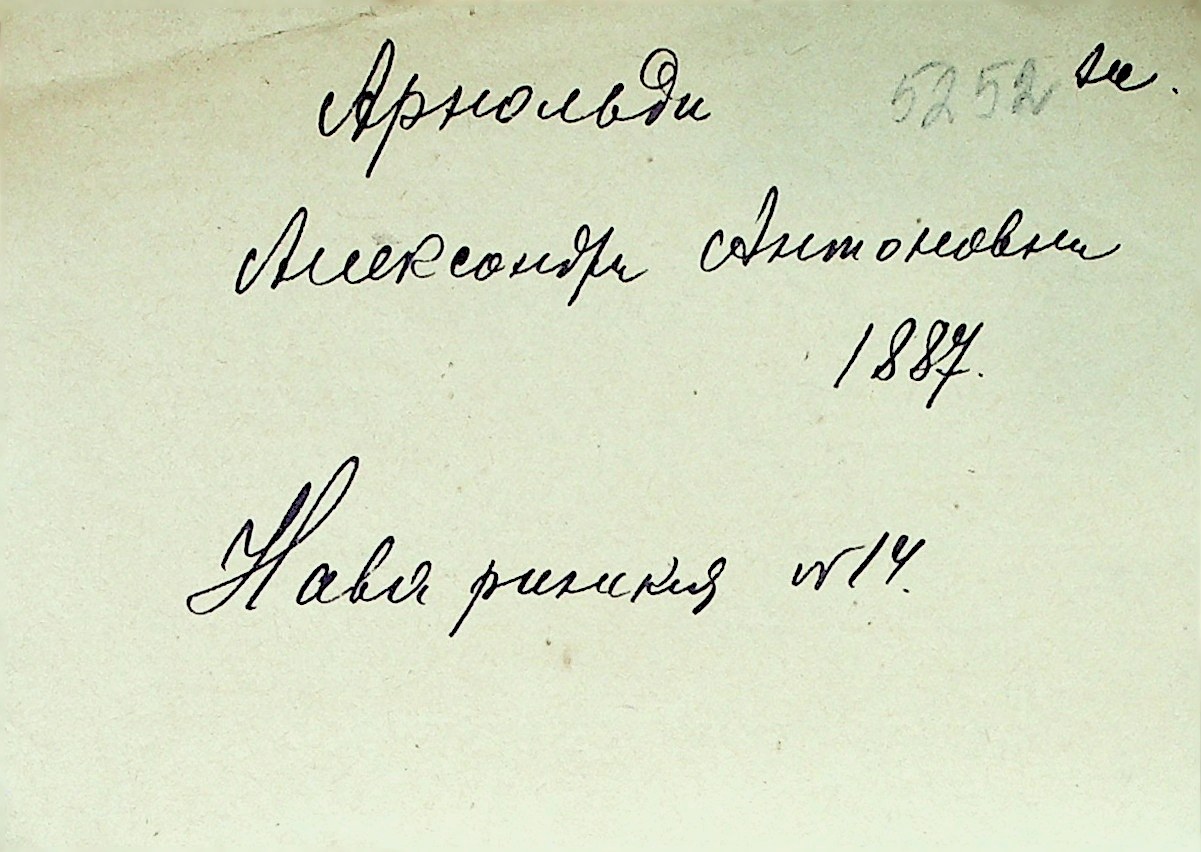 Арнольди 5252
Александра Антоновна
1887.
Наваринская №14.